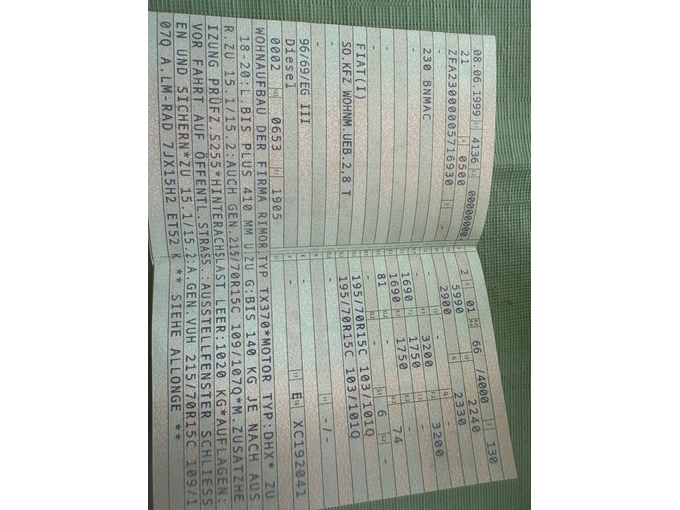 08.06.1999 4136 000000000
21 0500
ZFA23000005716930 -
-
230 BNMAC
-
-
FIAT(I)
SO.KFZ WOHNM.UEB.2,8 T
-
-
96/69/EG III
Diesel
0002 0653 1905
2 01 66 /4000 130
5990 2240
2900 2330
- - 3200
- 3200
1690 1750
1690 1750 74
-
81 6
195/70R15C 103/101Q
195/70R15C 103/101Q
-
- -/-
-
E XC192041
WOHNAUFBAU DER FIRMA RIMOR,TYP TX370*MOTOR TYP:DHX* ZU
18-20:L.BIS PLUS 410 MM U.ZU G:BIS 140 KG JE NACH AUS
R.ZU 15.1/15.2:AUCH GEN.215/70R15C 109/107Q*M.ZUSATZHE
IZUNG PRÜFZ.S255*HINTERACHSLAST LEER:1020 KG*AUFLAGEN:
VOR FAHRT AUF ÖFFENTL.STRASS.:AUSSTELLFENSTER SCHLIESS
EN UND SICHERN*ZU 15.1/15.2:A.GEN.VUH 215/70R15C 109/1
07Q A.LM-RAD 7JX15H2 ET52 K ** SIEHE ALLONGE **